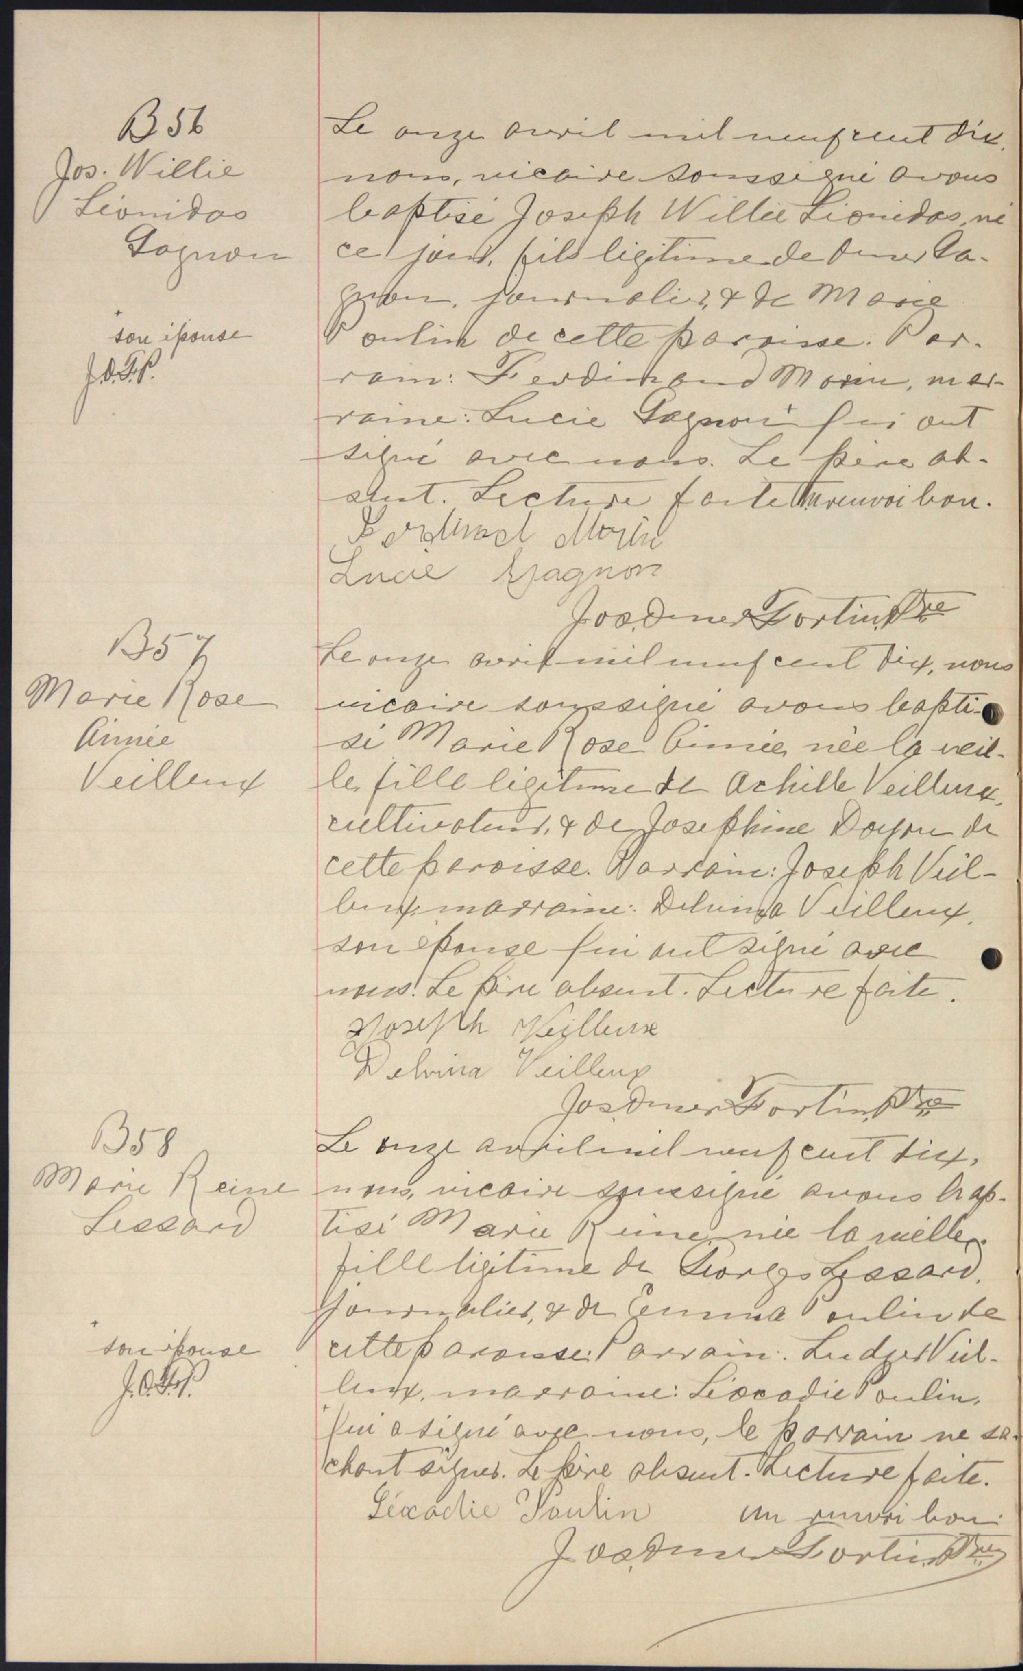 B 56
Jos. Willie
Léonidas
Gagnon
+ son épouse
J.O.F.P.
Le onze avril mil neuf cent dix,
nous, vicaire soussigné avons
baptisé Joseph Willie Léonidas, né
ce jour, fils légitime de Omer Ga-
gnon, journalier, & de Marie
Poulin de cette paroisse. Par-
rain: Ferdinand Morin, mar-
raine: Lucie Gagnon + qui ont
signé avec nous. Le père ab-
sent. Lecture faite. Un renvoi bon.
Ferdinad Morin
Lucie Gagnon
Jos. Omer Fortin, Ptre
B 57
Marie Rose
Aimée
Veilleux
Le onze avril mil neuf cent dix, nous
vicaire soussigné avons bapti-
sé Marie Rose Aimée, née la veil-
le, fille légitime de Achille Veilleux,
cultivateur, & de Josephine Doyon de
cette paroisse. Parrain: Joseph Veil-
leux, marraine: Delvina Veilleux,
son épouse qui ont signé avec
nous. Le père absent. Lecture faite.
Joseph Veilleux
Delvina Veilleux
Jos Omer Fortin, Ptre
B 58
Marie Reine
Lessard
+ son épouse
J.O.F.P.
Le onze avril mil neuf cent dix,
nous, vicaire soussigné avons bap-
tisé Marie Reine, née la veille,
fille légitime de Georges Lessard,
journalier, & de Emma Poulin de
cette paroisse. Parrain: Ludger Veil-
leux, marraine: Léocadie Poulin, +
qui a signé avec nous, le parrain ne sa-
chant signer. Le père absent. Lecture faite.
Léocadie Poulin un renvoi bon.
Jos. Omer Fortin, Ptre